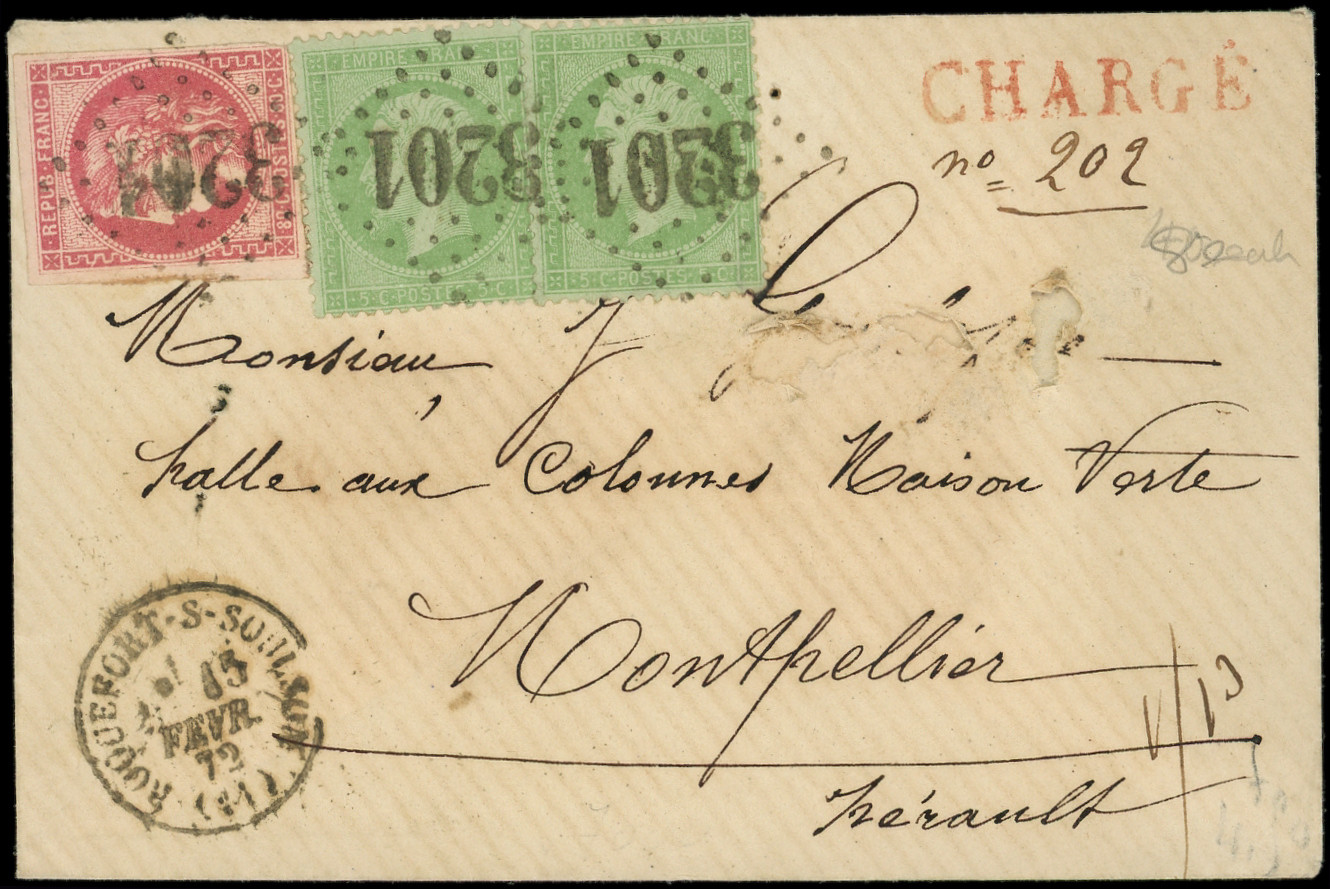 REPUB·FRANC·
3204
80·C·POSTES·80·C
EMPIRE·FRANC·
3201
5·C·POSTES·5·C
EMPIRE·FRANC·
3201
5·C·POSTES·5·C
CHARGÉ
no 202
Monsieur J
halle aux Colonnes Maison Verte
Montpellier
hérault
ROQUEFORT-S-SOULZON
15
FEVR.
72